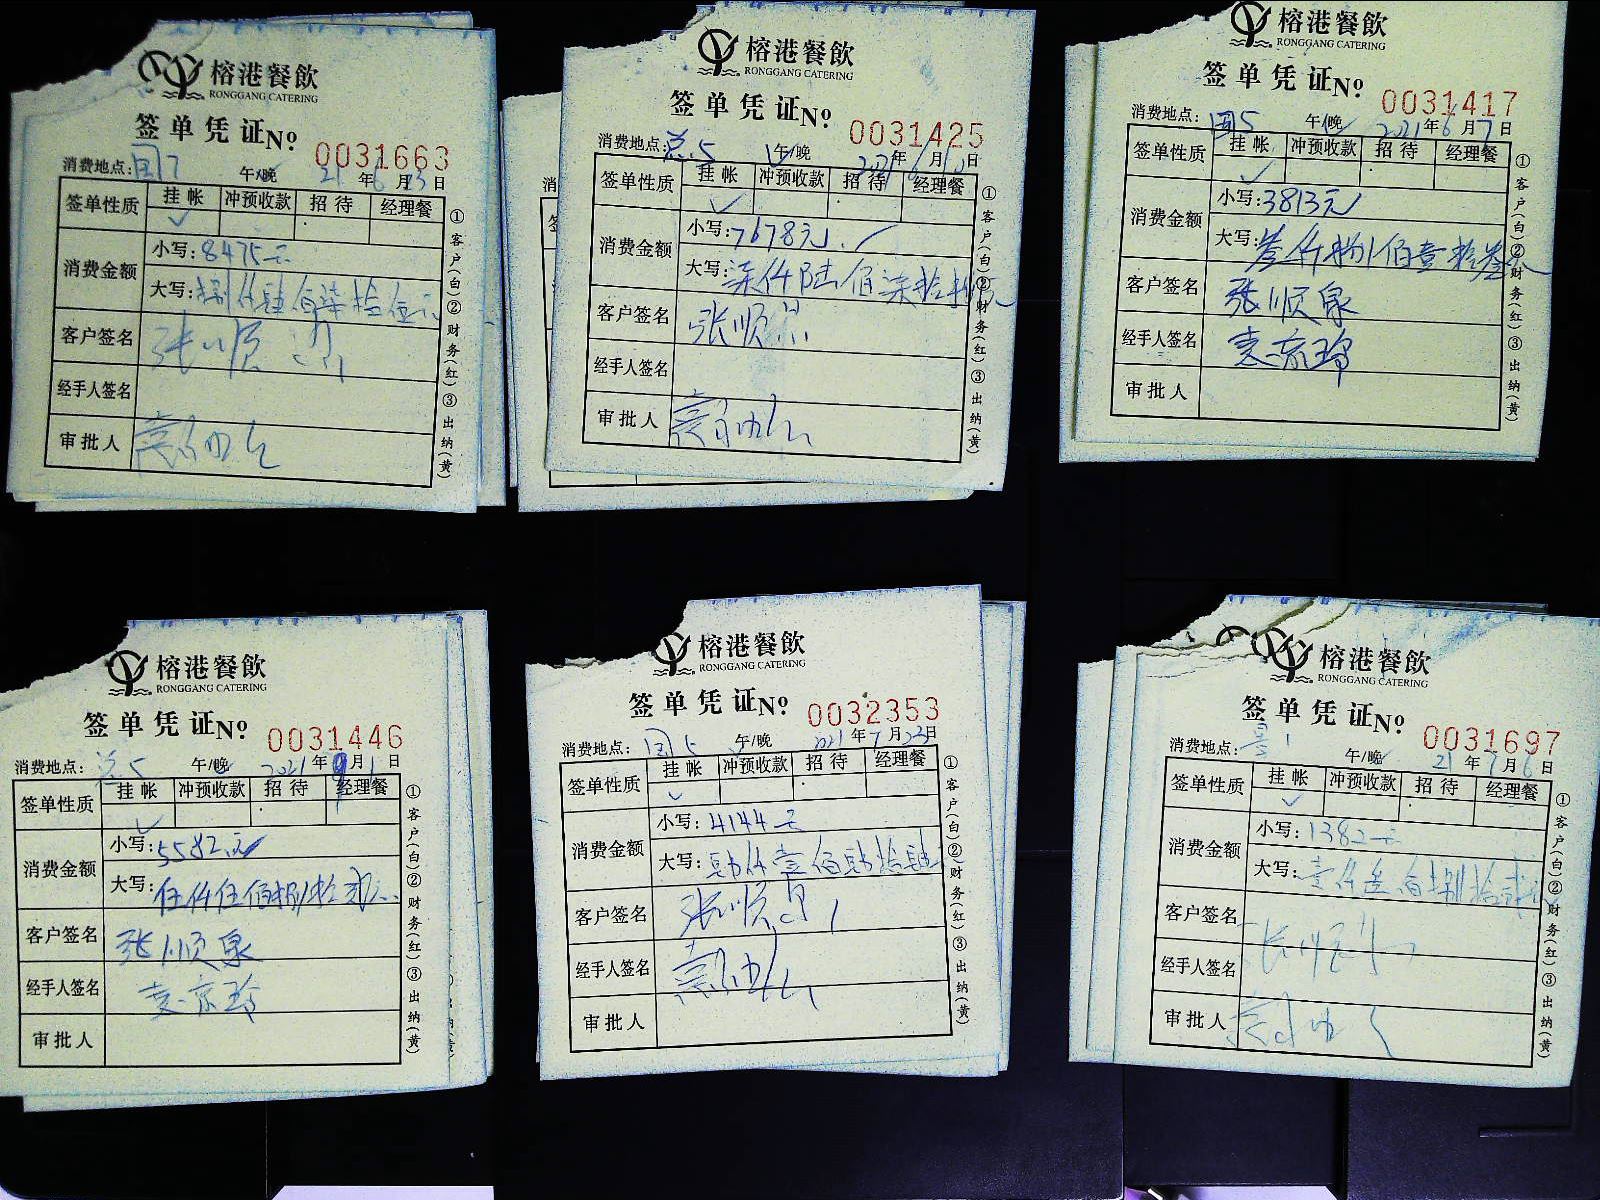 榕港餐飲
RONGGANG CATERING
签单凭证 No 0031663
消费地点: 国7 午/晚 21年6月13日
签单性质 挂帐 冲预收款 招待 经理餐
消费金额 小写: 8475元
大写: 捌仟肆佰柒拾伍元
客户签名 张顺
经手人签名
审批人
①客户(白)②财务(红)③出纳(黄)
榕港餐飲
RONGGANG CATERING
签单凭证 No 0031425
消费地点: 总5 午/晚 2021年6月10日
签单性质 挂帐 冲预收款 招待 经理餐
消费金额 小写: 7678元
大写: 柒仟陆佰柒拾捌元
客户签名 张顺
经手人签名
审批人
①客户(白)②财务(红)③出纳(黄)
榕港餐飲
RONGGANG CATERING
签单凭证 No 0031417
消费地点: 国5 午/晚 2021年6月7日
签单性质 挂帐 冲预收款 招待 经理餐
消费金额 小写: 3813元
大写: 叁仟捌佰壹拾叁元
客户签名 张顺泉
经手人签名 袁京玲
审批人
①客户(白)②财务(红)③出纳(黄)
榕港餐飲
RONGGANG CATERING
签单凭证 No 0031446
消费地点: 总5 午/晚 2021年9月1日
签单性质 挂帐 冲预收款 招待 经理餐
消费金额 小写: 5582元
大写: 伍仟伍佰捌拾贰元
客户签名 张顺泉
经手人签名 袁京玲
审批人
①客户(白)②财务(红)③出纳(黄)
榕港餐飲
RONGGANG CATERING
签单凭证 No 0032353
消费地点: 国5 午/晚 2021年7月23日
签单性质 挂帐 冲预收款 招待 经理餐
消费金额 小写: 4144元
大写: 肆仟壹佰肆拾肆
客户签名 张顺
经手人签名
审批人
①客户(白)②财务(红)③出纳(黄)
榕港餐飲
RONGGANG CATERING
签单凭证 No 0031697
消费地点: 午/晚 21年7月6日
签单性质 挂帐 冲预收款 招待 经理餐
消费金额 小写: 1382元
大写: 壹仟叁佰捌拾贰元
客户签名
经手人签名
审批人
①客户(白)②财务(红)③出纳(黄)